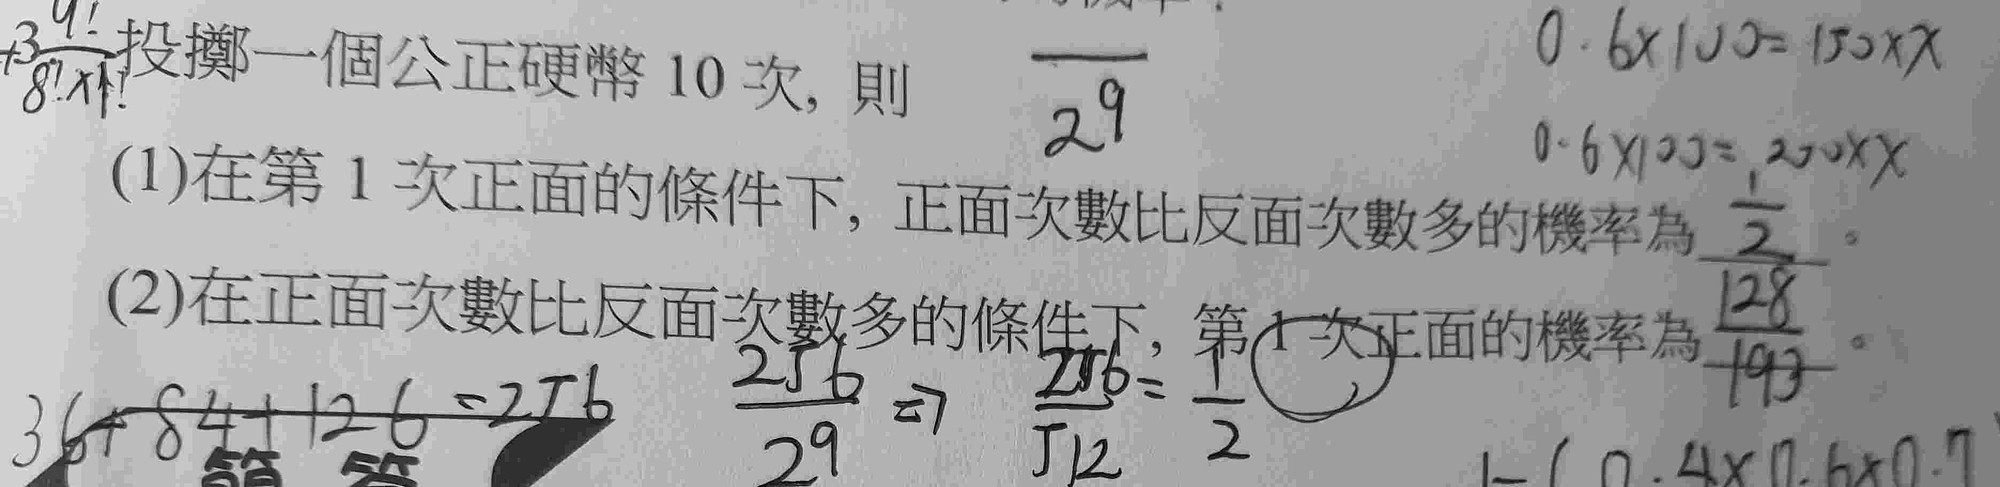 +3 9!/8!x1!
投擲一個公正硬幣 10 次, 則
/2⁹
0.6x100=150xX
0.6x100=200xX
(1)在第 1 次正面的條件下, 正面次數比反面次數多的機率為 1/2 。
(2)在正面次數比反面次數多的條件下, 第 1 次正面的機率為 128/193 。
36+84+126=256
256/2⁹ => 256/512 = 1/2
1-(0.4x0.6x0.7
簡答